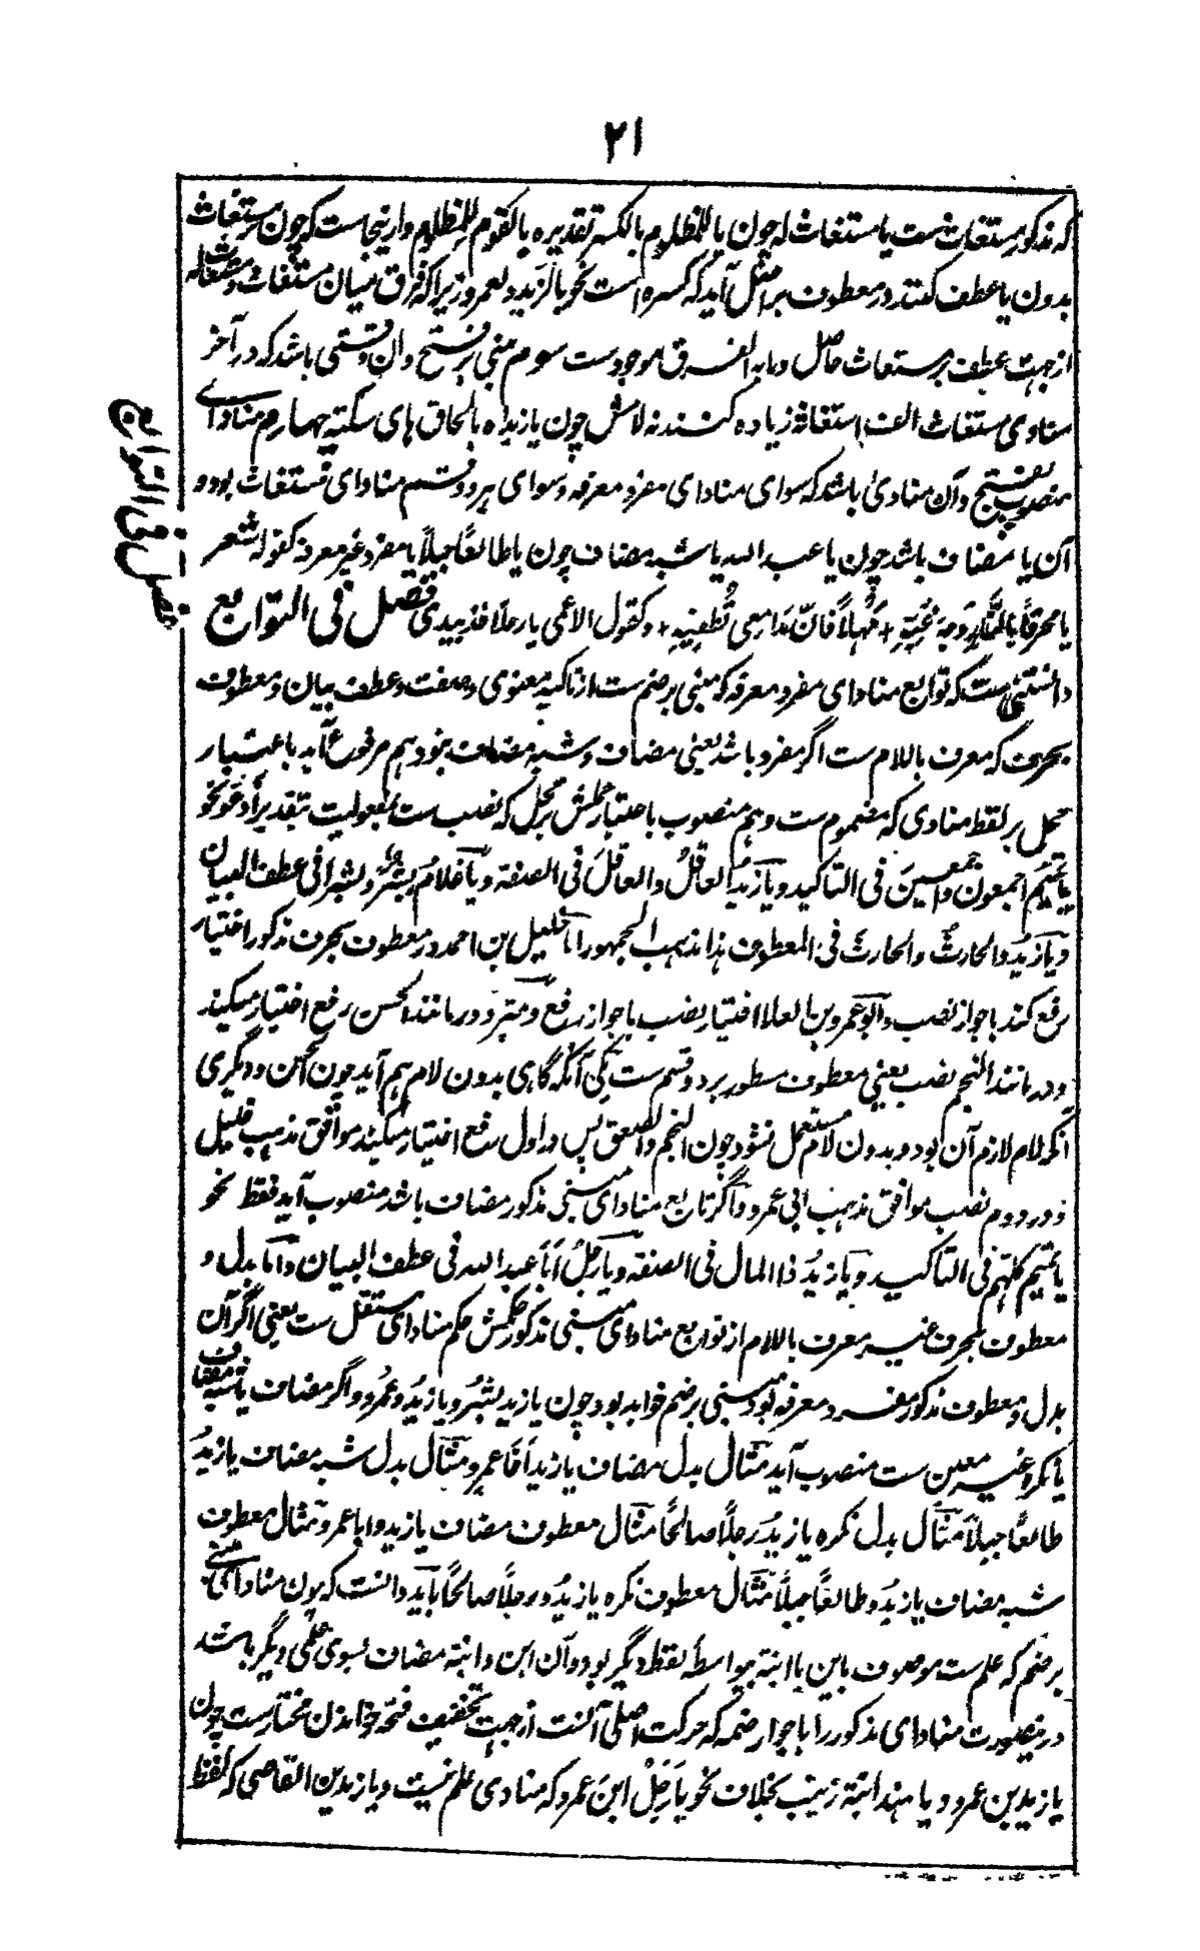 ۲۱
که مذکور مستغاث ست یا مستغاث له چون یا للمظلوم بالکسر تقدیره یا لقوم للمظلوم و ازینجاست که چون بر مستغاث
بدون یا عطف کنند در معطوف برا مثل آید که کسره است نحو یا لزید و لعمرو زیرا که فرق میان مستغاث و مستغاث له
از جهت عطف بر مستغاث حاصل و ما به الفرق موجودست سوم مبنی بر فتح وآن وقتی باشد که در آخر
منادی مستغاث الف استغاثه زیاده کنند نه لامش چون یا زیداه بالحاق های سکته چهارم منادای
منصوب بفتح و آن منادی باشد که سوای منادای مفرد معرفه و سوای هر دو قسم منادای مستغاث بود و
آن یا مضاف باشد چون یا عبد الله یا شبه مضاف چون یا طالعًا جبلًا یا مفرد غیر معرفه کقوله شعر
یا محرقًا بالنار وجه محبه + مهلًا فان مدامعی تطفیه + و کقول الاعمی یا رجلًا خذ بیدی فصل فی التوابع
فصل فی التوابع
دانستنی ست که توابع منادای مفرد معرفه که مبنی بر ضم ست از تاکید معنوی و صفت و عطف بیان و معطوف
بحرف که معرف باللام ست اگر مفرد باشد یعنی مضاف و شبه مضاف نبود هم مرفوع آید باعتبار
حمل بر لفظ منادی که مضموم ست و هم منصوب باعتبار حملش بر محل که نصب ست بمفعولیت بتقدیر أدعو نحو
یا تمیم اجمعون و اجمعین فی التاکید و یا زیدُ العاقلُ والعاقلَ فی الصفة و یا غلامُ بشرٌ و بشرًا فی عطف البیان
و یا زیدُ والحارثُ والحارثَ فی المعطوف هذا مذهب الجمهور اما خلیل بن احمد در معطوف بحرف مذکور اختیار
رفع کند با جواز نصب و ابو عمرو بن العلا اختیار نصب با جواز رفع و مبرد در مانند الحسن رفع اختیار میکند
و در مانند النجم نصب یعنی معطوف مسطور بر دو قسم ست یکی آنکه گاهی بدون لام هم آید چون الحسن و دیگری
آنکه لام لازم آن بود و بدون لام مستعمل نشود چون النجم والصعق پس در اول رفع اختیار میکند موافق مذهب خلیل
و در دوم نصب موافق مذهب ابی عمرو و اگر تابع منادای مبنی مذکور مضاف باشد منصوب آید فقط نحو
یا تمیم کلهم فی التاکید و یا زیدُ ذا المال فی الصفة و یا رجلُ أبا عبد الله فی عطف البیان و اما بدل و
معطوف بحرف غیر معرف باللام از توابع منادای مبنی مذکور حکمش حکم منادای مستقل ست یعنی اگر آن
بدل و معطوف مذکور مفرد معرفه بود مبنی بر ضم خواهد بود چون یا زید بشرُ و یا زیدُ و عمرُو و اگر مضاف یا شبه مضاف
یا نکره غیر معین ست منصوب آید مثال بدل مضاف یا زید أخا عمرو مثال بدل شبه مضاف یا زیدُ
طالعًا جبلًا مثال بدل نکره یا زیدُ رجلًا صالحًا مثال معطوف مضاف یا زید و ابا عمرو مثال معطوف
شبه مضاف یا زیدُ و طالعًا جبلًا مثال معطوف نکره یا زیدُ و رجلًا صالحًا باید دانست که چون منادای مبنی
بر ضم که علم ست موصوف بابن یا ابنة بیواسطه لفظ دیگر بود و آن ابن و ابنة مضاف بسوی علمی دیگر باشد
درینصورت منادای مذکور را با جواز ضمه که حرکت اصلی آنست از جهت تخفیف فتحه خواندن مختارست چون
یا زید بن عمرو و یا هند ابنة زینب بخلاف نحو یا رجلُ ابنَ عمرو که منادی علم نیست و یا زید بن القاضی که لفظ